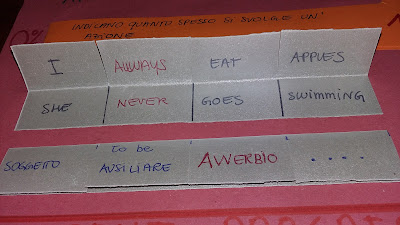 INDICANO QUANTO SPESSO SI SVOLGE UN'
AZIONE
0%
I ALWAYS EAT APPLES
SHE NEVER GOES SWIMMING
SOGGETTO to be AUSILIARE AVVERBIO ....